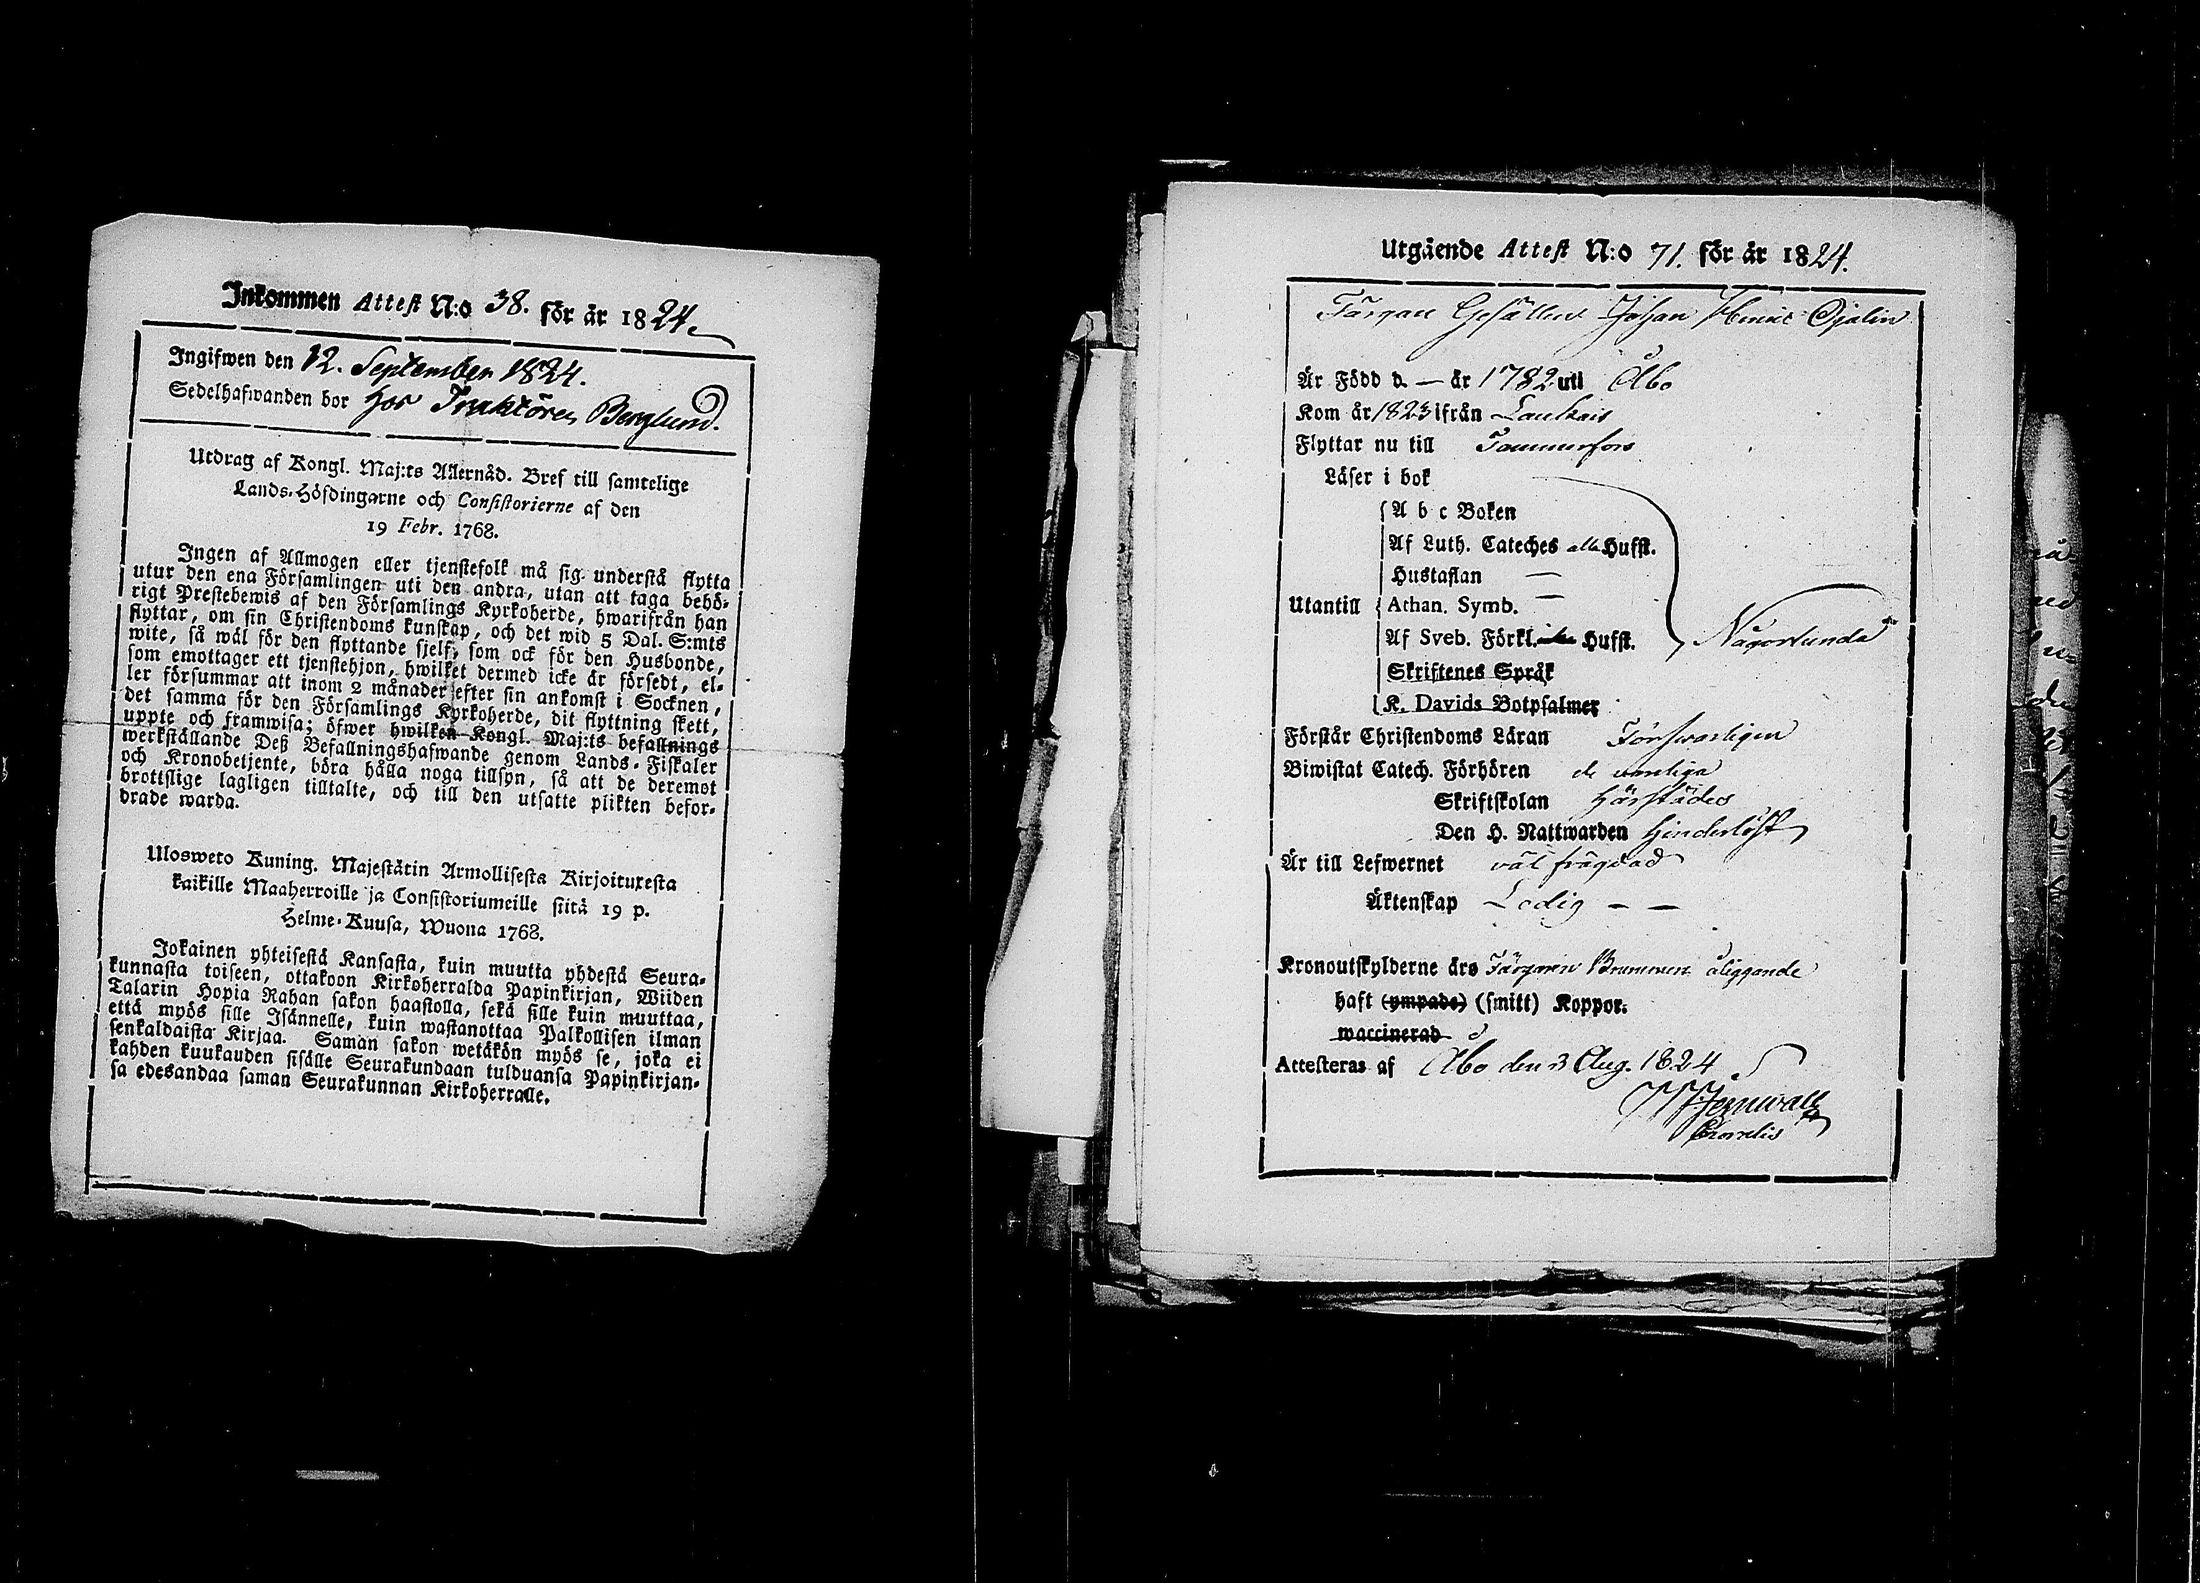 Inkommen Attest N:o 38. för år 1824.
Ingifwen den 12. September 1824.
Sedelhafwanden bor hos Traktören Berglund.
Utdrag af Kongl. Maj:ts Allernåd. Bref till samtelige
Lands-Höfdingarne och Consistorierne af den
19 Febr. 1768.
Ingen af Allmogen eller tjenstefolk må sig understå flytta
utur den ena Församlingen uti den andra, utan att taga behö-
rigt Prestebewis af den Församlings Kyrkoherde, hwarifrån han
flyttar, om sin Christendoms kunskap, och det wid 5 Dal. S:mts
wite, så wäl för den flyttande sjelf, som ock för den Husbonde,
som emottager ett tjenstehjon, hwilket dermed icke är försedt, el-
ler försummar att inom 2 månader efter sin ankomst i Socknen,
det samma för den Församlings Kyrkoherde, dit flyttning skett,
uppte och framwisa; öfwer hwilken Kongl. Maj:ts befallnings
werkställande Deß Befallningshafwande genom Lands-Fiskaler
och Kronobetjente, böra hålla noga tillsyn, så att de deremot
brottslige lagligen tilltalte, och till den utsatte plikten befor-
drade warda.
Ulosweto Kuning. Majestätin Armollisesta Kirjoituxesta
kaikille Maaherroille ja Consistoriumeille siitä 19 p.
Helme-Kuusa, Wuona 1768.
Jokainen yhteisestä Kansasta, kuin muutta yhdestä Seura-
kunnasta toiseen, ottakoon Kirkoherralda Papinkirjan, Wiiden
Talarin Hopia Rahan sakon haastolla, sekä sille kuin muuttaa,
että myös sille Isännelle, kuin wastanottaa Palkollisen ilman
senkaldaista Kirjaa. Saman sakon wetäkön myös se, joka ei
kahden kuukauden sisälle Seurakundaan tulduansa Papinkirjan-
sa edesandaa saman Seurakunnan Kirkoherralle.
Utgående Attest N:o 71. för år 1824.
Färgare Gesällen Johan Henric Ojalin
Är Född d. — år 1782 uti Åbo
Kom år 1823 ifrån Laukais
Flyttar nu till Tammerfors
Läser i bok
A b c Boken
Af Luth. Cateches alla Hufst.
Hustaflan —
Utantill Athan. Symb. —
Af Sveb. Förkl. Hufst. Någorlunda
Skriftenes Språk
K. Davids Botpsalmer
Förstår Christendoms Läran Försvarligen
Biwistat Catech. Förhören de vanliga
Skriftskolan härstädes
Den H. Nattwarden hinderlöst
Är till Lefwernet väl frägdad
Äktenskap Ledig — —
Kronoutskylderne äro Färgaren åliggande
haft (ympade) (smitt) Koppor.
waccinerad
Attesteras af Åbo den 3 Aug. 1824